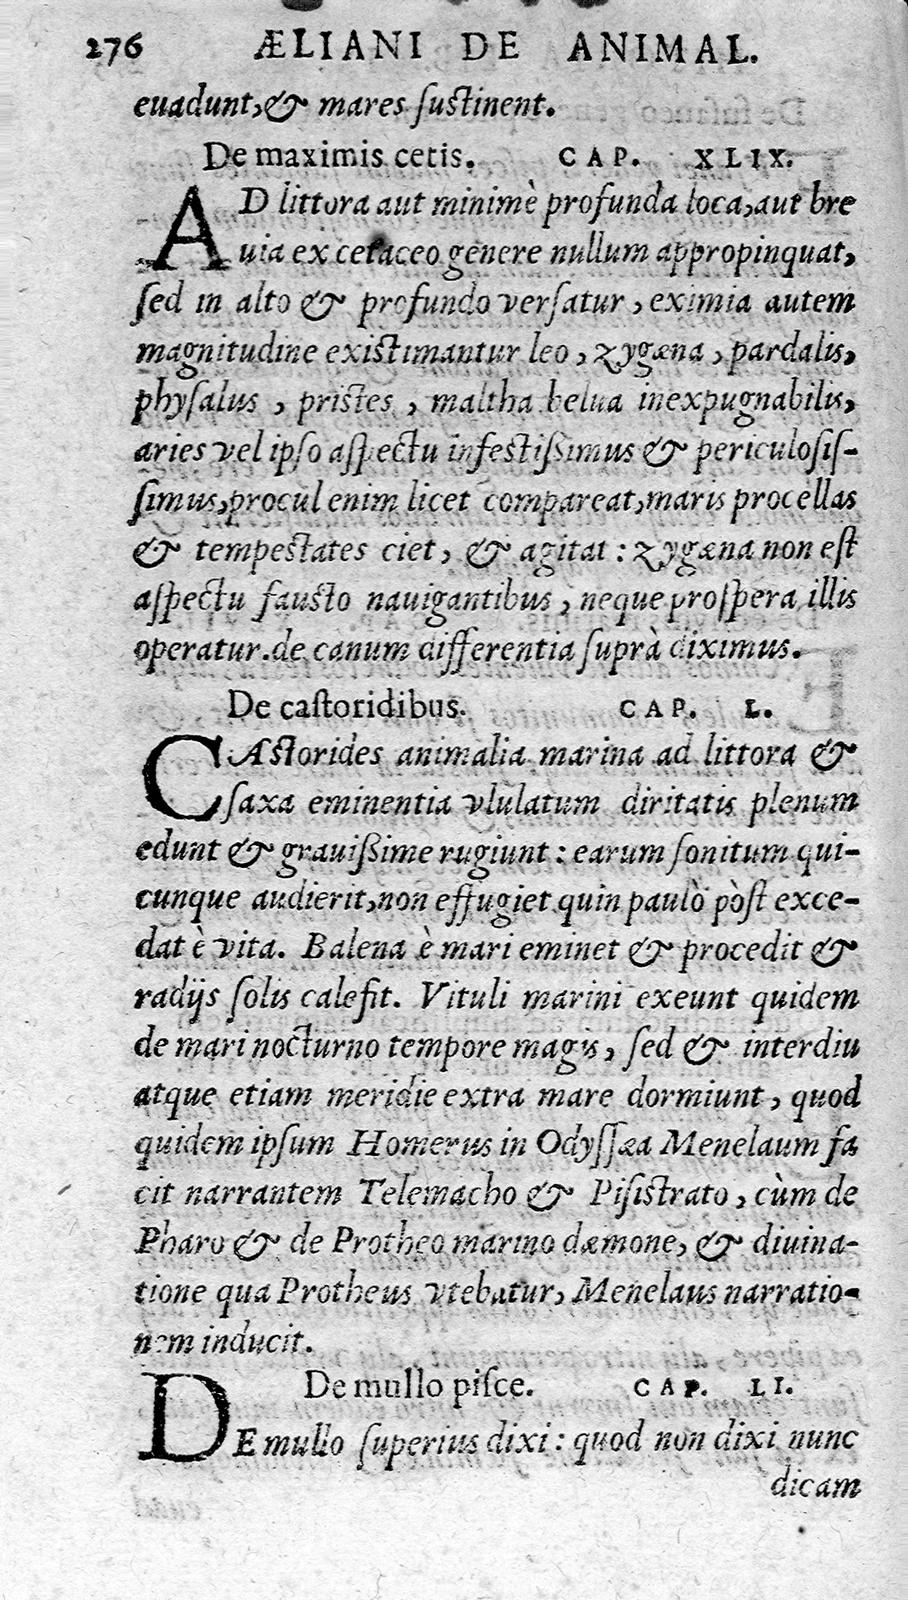 276 ÆLIANI DE ANIMAL.
euadunt, & mares ſuſtinent.
De maximis cetis. CAP. XLIX.
AD littora aut minimè profunda loca, aut bre
uia ex cetaceo genere nullum appropinquat,
ſed in alto & profundo verſatur, eximia autem
magnitudine exiſtimantur leo, zygæna, pardalis,
phyſalus, priſtes, maltha belua inexpugnabilis,
aries vel ipſo aſpectu infeſtiſsimus & periculoſiſ-
ſimus, procul enim licet compareat, maris procellas
& tempeſtates ciet, & agitat: zygæna non eſt
aſpectu fauſto nauigantibus, neque proſpera illis
operatur. de canum differentia ſuprà diximus.
De caſtoridibus. CAP. L.
CAſtorides animalia marina ad littora &
ſaxa eminentia vlulatum diritatis plenum
edunt & grauiſsime rugiunt: earum ſonitum qui-
cunque audierit, non effugiet quin paulò pòſt exce-
dat è vita. Balena è mari eminet & procedit &
radijs ſolis calefit. Vituli marini exeunt quidem
de mari nocturno tempore magis, ſed & interdiu
atque etiam meridie extra mare dormiunt, quod
quidem ipſum Homerus in Odyſſæa Menelaum fa
cit narrantem Telemacho & Piſiſtrato, cùm de
Pharo & de Protheo marino dæmone, & diuina-
tione qua Protheus vtebatur, Menelaus narratio-
nem inducit.
De mullo piſce. CAP. LI.
DE mullo ſuperius dixi: quod non dixi nunc
dicam